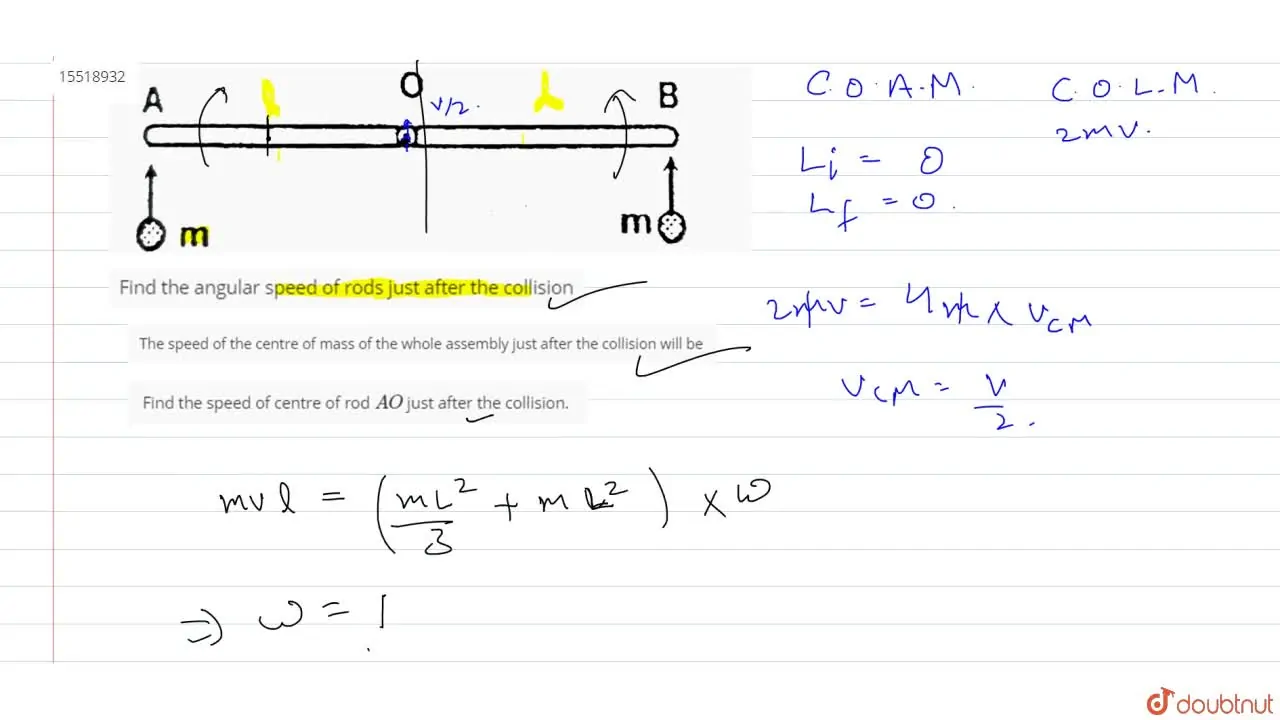 15518932
A l O v/2. L B
m m
Find the angular speed of rods just after the collision
The speed of the centre of mass of the whole assembly just after the collision will be
Find the speed of centre of rod AO just after the collision.
C.O.A.M.
Li = 0
Lf = 0.
C.O.L.M.
2mv.
2mv = 4m x vCM
vCM = v/2.
mvl = (mL²/3 + mL²) x ω
⇒ ω = 1
doubtnut